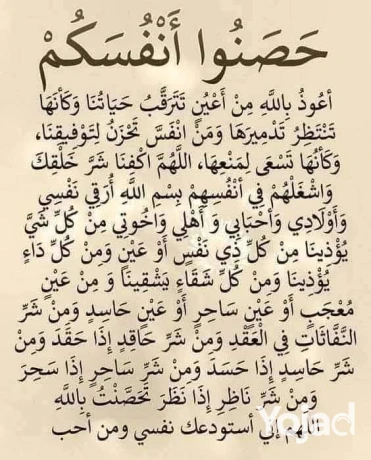 حَصَنُوا أَنْفُسَكُمْ
أعُوذُ بِاللَّهِ مِنْ أَعْيُنٍ تَتَرَقَّبُ حَيَاتُنَا وَكَأنَهَا
تَنْتَظِرُ تَدْمِيرَهَا وَمَنْ انْفَسَ تَحْزَنُ لِتَوْفِيقِنَا،
وَكَأنُهَا تَسْعَى لِمَنعِهَا، اللَّهُمَّ اكْفِنَا شَرَّ خَلْقِكَ
وَاشْغَلْهُمْ فِي أنْفُسِهِمْ بِسْمِ اللَّهِ أُرَقِي نَفْسِي
وَأَوْلَادِي وَأحْبَابِي وَ أَهْلِي وَاخُوتِي مِنْ كُلِّ شَيَّ
يُؤْذِينَا مِنْ كُلِّ ذِي نَفْسٍ أَوْ عَيْنٍ وَمِنْ كُلِّ دَاءٍ
يُؤْذِينَا وَمِنْ كُلِّ شَقَاءٍ يَشْقِينَا وَ مِنْ عَيْنٍ
مُعْجَبٍ أَوْ عَيْنِ سَاحِرٍ أَوْ عَيْنِ حَاسِدٍ وَمِنْ شَرِّ
النَّفَّاثَاتِ فِي الْعُقَدِ وَمِنْ شَرِ حَاقِدٍ إِذَا حَقَدَ وَمِنْ
شَرِّ حَاسِدٍ إِذَا حَسَدَ وَمِنْ شَرِ سَاحِرٍ إِذَا سَحِرَ
وَمِنْ شَرِ نَاظِرٍ إِذَا نَظَرَ تَحَصَّنْتُ بِاللَّهِ
اللهم إني أستودعك نفسي ومن أحب
Yojad